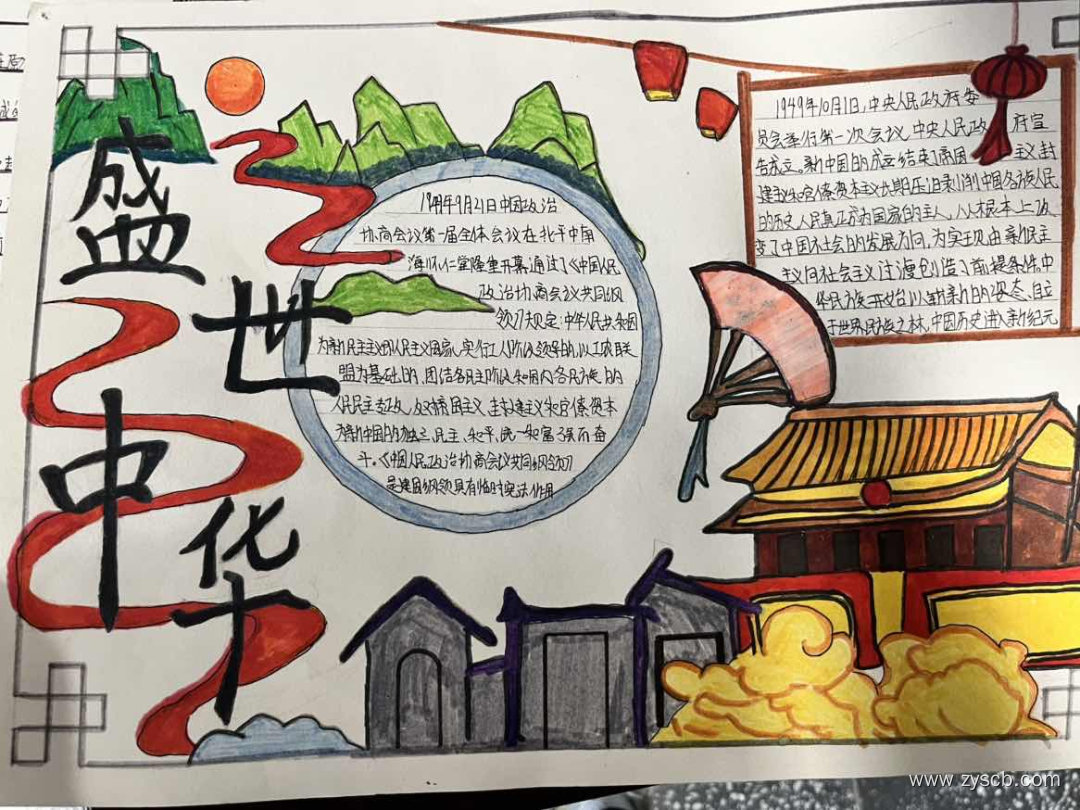 盛世中华
1949年9月21日中国政治
协商会议第一届全体会议在北平中南
海怀仁堂隆重开幕,通过了《中国人民
政治协商会议共同纲
领》规定:中华人民共和国
为新民主主义即人民主义国家,实行工人阶级领导的,以工农联
盟为基础的,团结各民主阶级和国内各民族的
人民民主专政,反对帝国主义,封建主义和官僚资本
为新中国的独立,民主,和平,统一和富强而奋
斗。《中国人民政治协商会议共同纲领》
是建国纲领具有临时宪法作用
1949年10月1日,中央人民政府委
员会举行第一次会议,中央人民政 府宣
告成立。新中国的成立结束了帝国 主义封
建主义和官僚资本主义长期压迫剥削中国各族人民
的历史人民真正成为国家的主人,从根本上改
变了中国社会的发展方向,为实现由新民主
主义向社会主义过渡创造了前提条件,中
华民族开始以崭新的姿态,自立
于世界民族之林,中国历史进入新纪元
www.zyscb.com